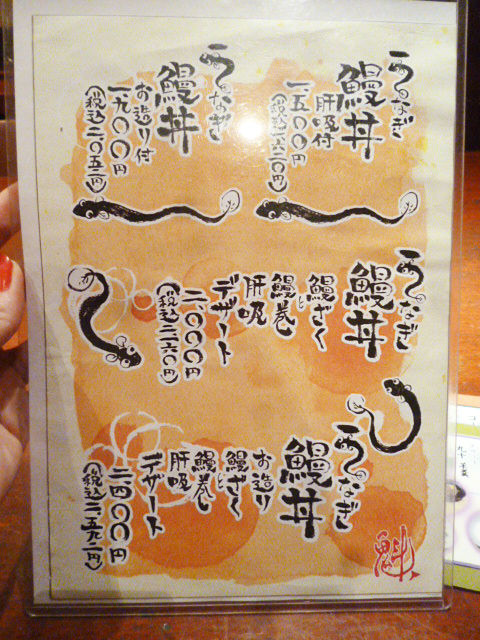 うなぎ
鰻丼
肝吸付
一五〇〇円
(税込一六二〇円)
うなぎ
鰻丼
お造り付
一九〇〇円
(税込二〇五二円)
うなぎ
鰻丼
鰻ざくと
鰻巻し
肝吸
デザート
二、〇〇〇円
(税込二一六〇円)
うなぎ
鰻丼
お造り
鰻ざくと
鰻巻し
肝吸
デザート
二四〇〇円
(税込二五九二円)
魁